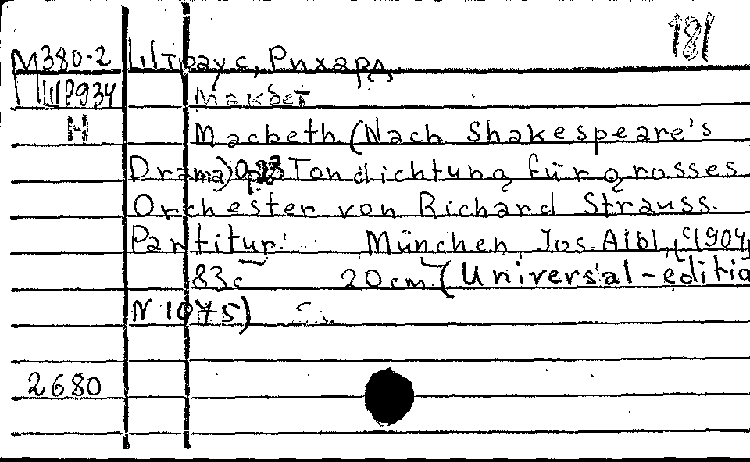 181
М380-2 Штраус, Рихард,
Ш934 Макбет
Н Macbeth (Nach Shakespeare's
Drama) Op.23 Tondichtung für grosses
Orchester von Richard Strauss.
Partitur. München Jos. Aibl, c1904,
83с 20cm (Universal-editio
N 1075)
2680